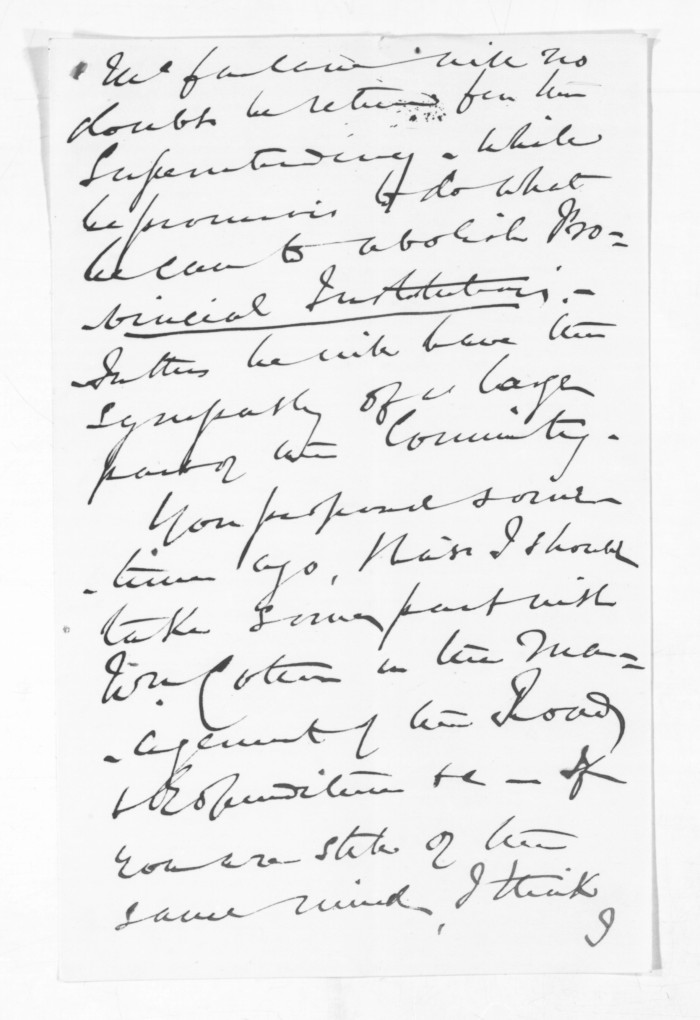 McFarlane will no
doubt be return for the
Superintendency - while
he promises to do what
he can to abolish Pro=
=vincial Institutions. -
In this he will have the
sympathy of a large
part of the Community -
You proposed some
-time ago, that I should
take some part with
Tom in the Ma=
-agement of the Road
& Expenditure &c - If
you are still of the
same mind, I think
I